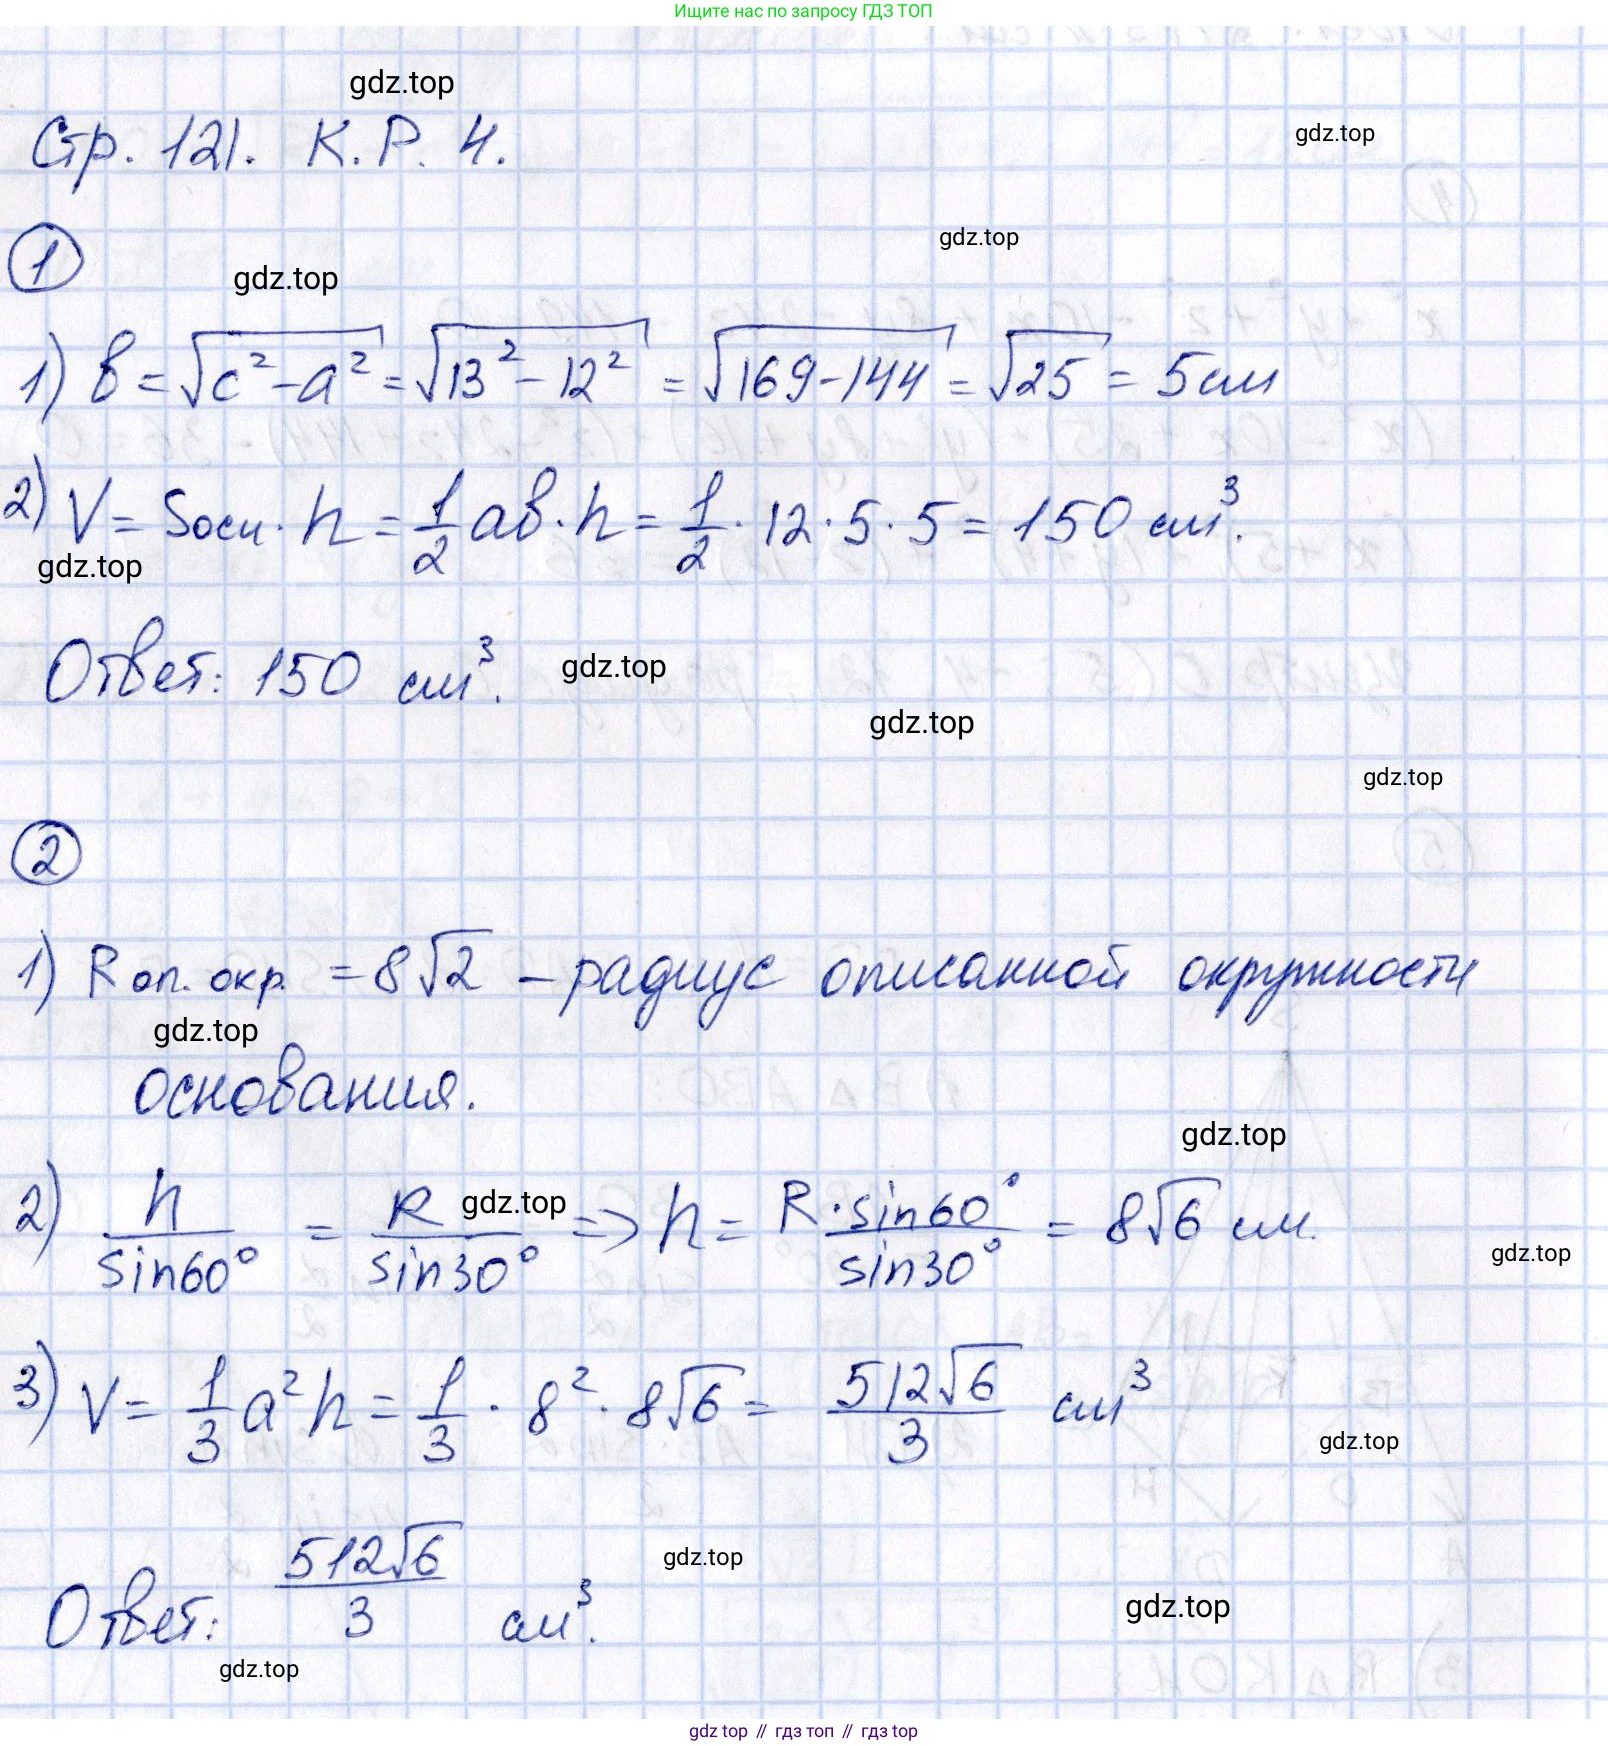 Ищите нас по запросу ГДЗ ТОП
gdz.top
Стр. 121. К.Р. 4.
gdz.top
1
gdz.top
gdz.top
1) b = √(c² - a²) = √(13² - 12²) = √(169 - 144) = √25 = 5 см
2) V = Sосн · h = 1/2 ab · h = 1/2 · 12 · 5 · 5 = 150 см³.
gdz.top
Ответ: 150 см³.
gdz.top
gdz.top
gdz.top
2
1) R оп. окр. = 8√2 – радиус описанной окружности
gdz.top
основания.
gdz.top
2) h/sin60° = R/sin30° => h = R·sin60°/sin30° = 8√6 см.
gdz.top
gdz.top
3) V = 1/3 a² h = 1/3 · 8² · 8√6 = 512√6/3 см³
gdz.top
Ответ: 512√6/3 см³.
gdz.top
gdz.top
gdz.top
gdz top // гдз топ // гдз top